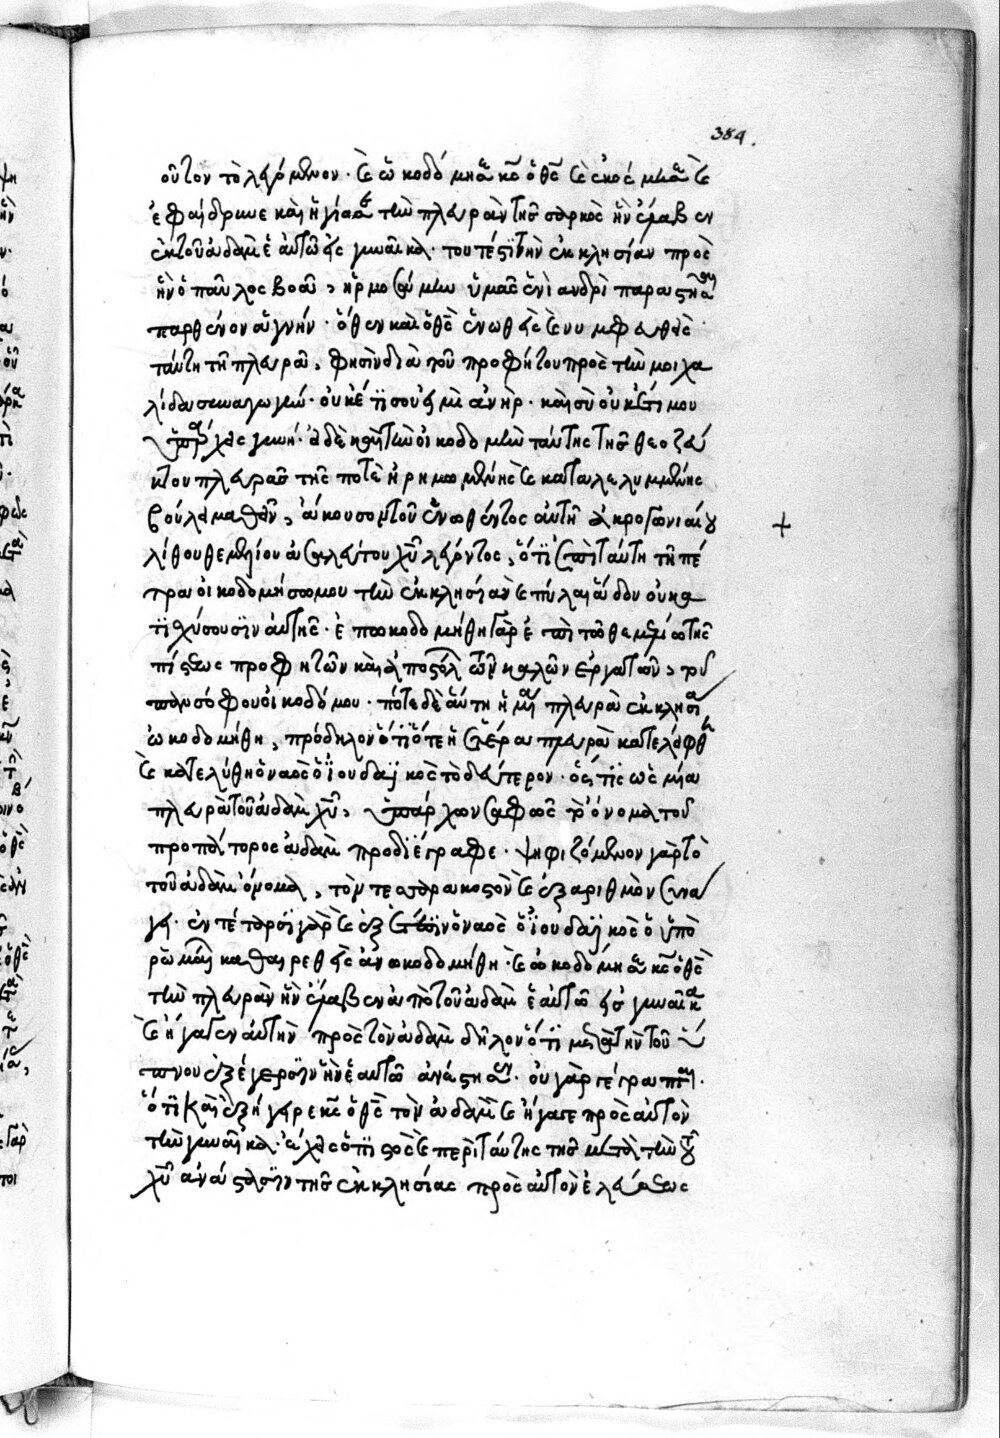 384.
οὗτον τὸ λεγόμενον· καὶ ὠκοδόμησε κς ὁ θς καὶ ἐκόσμησε καὶ
ἐφαίδρυνε καὶ ἡγίασε τὴν πλευρὰν τῆς σαρκὸς ἣν ἔλαβεν
ἐκ τοῦ ἀδὰμ ἑαυτῷ εἰς γυναῖκα· τουτέστι τὴν ἐκκλησίαν πρὸς
ἣν ὁ παῦλος βοᾷ, ἡρμοσάμην ὑμᾶς ἑνὶ ἀνδρὶ παραστῆσαι
παρθένον ἁγνήν· ὅθεν καὶ ὁ θς ἑνωθεὶς καὶ νυμφευθεὶς
ταύτῃ τῇ πλευρᾷ, φησὶν διὰ τοῦ προφήτου πρὸς τὴν μοιχα
λίδα συναγωγήν· οὐκέτι σου εἰμὶ ἀνὴρ· καὶ σὺ οὐκέτι μου
ὑπάρχεις γυνή· εἰ δὲ καὶ τὴν οἰκοδομὴν ταύτης τῆς θεοζεύ
κτου πλευρᾶς τῆς ποτὲ ἠρημωμένης καὶ καταλελυμένης
βούλει μαθεῖν, ἄκουσον τοῦ ἑνωθέντος αὐτῇ ἀκρογωνιαίου
λίθου θεμελίου ἀσαλεύτου χυ λέγοντος, ὅτι ἐπὶ ταύτῃ τῇ πέ
τρᾳ οἰκοδομήσω μου τὴν ἐκκλησίαν καὶ πύλαι ἅδου οὐ κα
τισχύσουσιν αὐτῆς· ἐποικοδομήθη γὰρ ἐπὶ τοῦ θεμελίου τῆς
πίστεως προφητῶν καὶ ἀποστόλων τῶν καλῶν ἐργατῶν, τοῦ
πανσόφου οἰκοδόμου· πότε δὲ αὕτη ἡ μία πλευρὰ ἐκκλησία
ὠκοδομήθη, πρόδηλον ὅτι ὅτε ἡ ἑτέρα πλευρὰ κατελείφθη
καὶ κατελύθη ὁ ναὸς ὁ ἰουδαϊκὸς τὸ δεύτερον· ὅστις ὡς μία
πλευρὰ τοῦ ἀδὰμ χυ, ὑπάρχων σαφῶς τὸ ὄνομα τοῦ
προπάτορος ἀδὰμ προδιέγραφε· ψηφιζόμενον γὰρ τὸ
τοῦ ἀδὰμ ὄνομα, τὸν τεσσαρακοστὸν καὶ ἓξ ἀριθμὸν συνά
γει· ἐν τεσσαράκοντα γὰρ καὶ ἓξ ἔτεσιν ὁ ναὸς ὁ ἰουδαϊκὸς ὁ ὑπὸ
ῥωμαίων καθαιρεθεὶς ἀνωκοδομήθη· καὶ ὠκοδόμησε κς ὁ θς
τὴν πλευρὰν ἣν ἔλαβεν ἀπὸ τοῦ ἀδὰμ ἑαυτῷ εἰς γυναῖκα
καὶ ἤγαγεν αὐτὴν πρὸς τὸν ἀδὰμ δῆλον ὅτι μετὰ τὴν τοῦ
ὕπνου ἐξέγερσιν ἤγουν αὐτοῦ ἀνάστασιν· οὐ γὰρ γέγραπται·
ὅτι καὶ ἐξήγειρε κς ὁ θς τὸν ἀδὰμ καὶ ἤγαγε πρὸς αὐτὸν
τὴν γυναῖκα· εἰ μὴ ὅτι πιστὸς καὶ περὶ ταύτης τῆς μετὰ τὴν τοῦ
χυ ἀνάστασιν τῆς ἐκκλησίας πρὸς αὐτὸν ἐλεύσεως